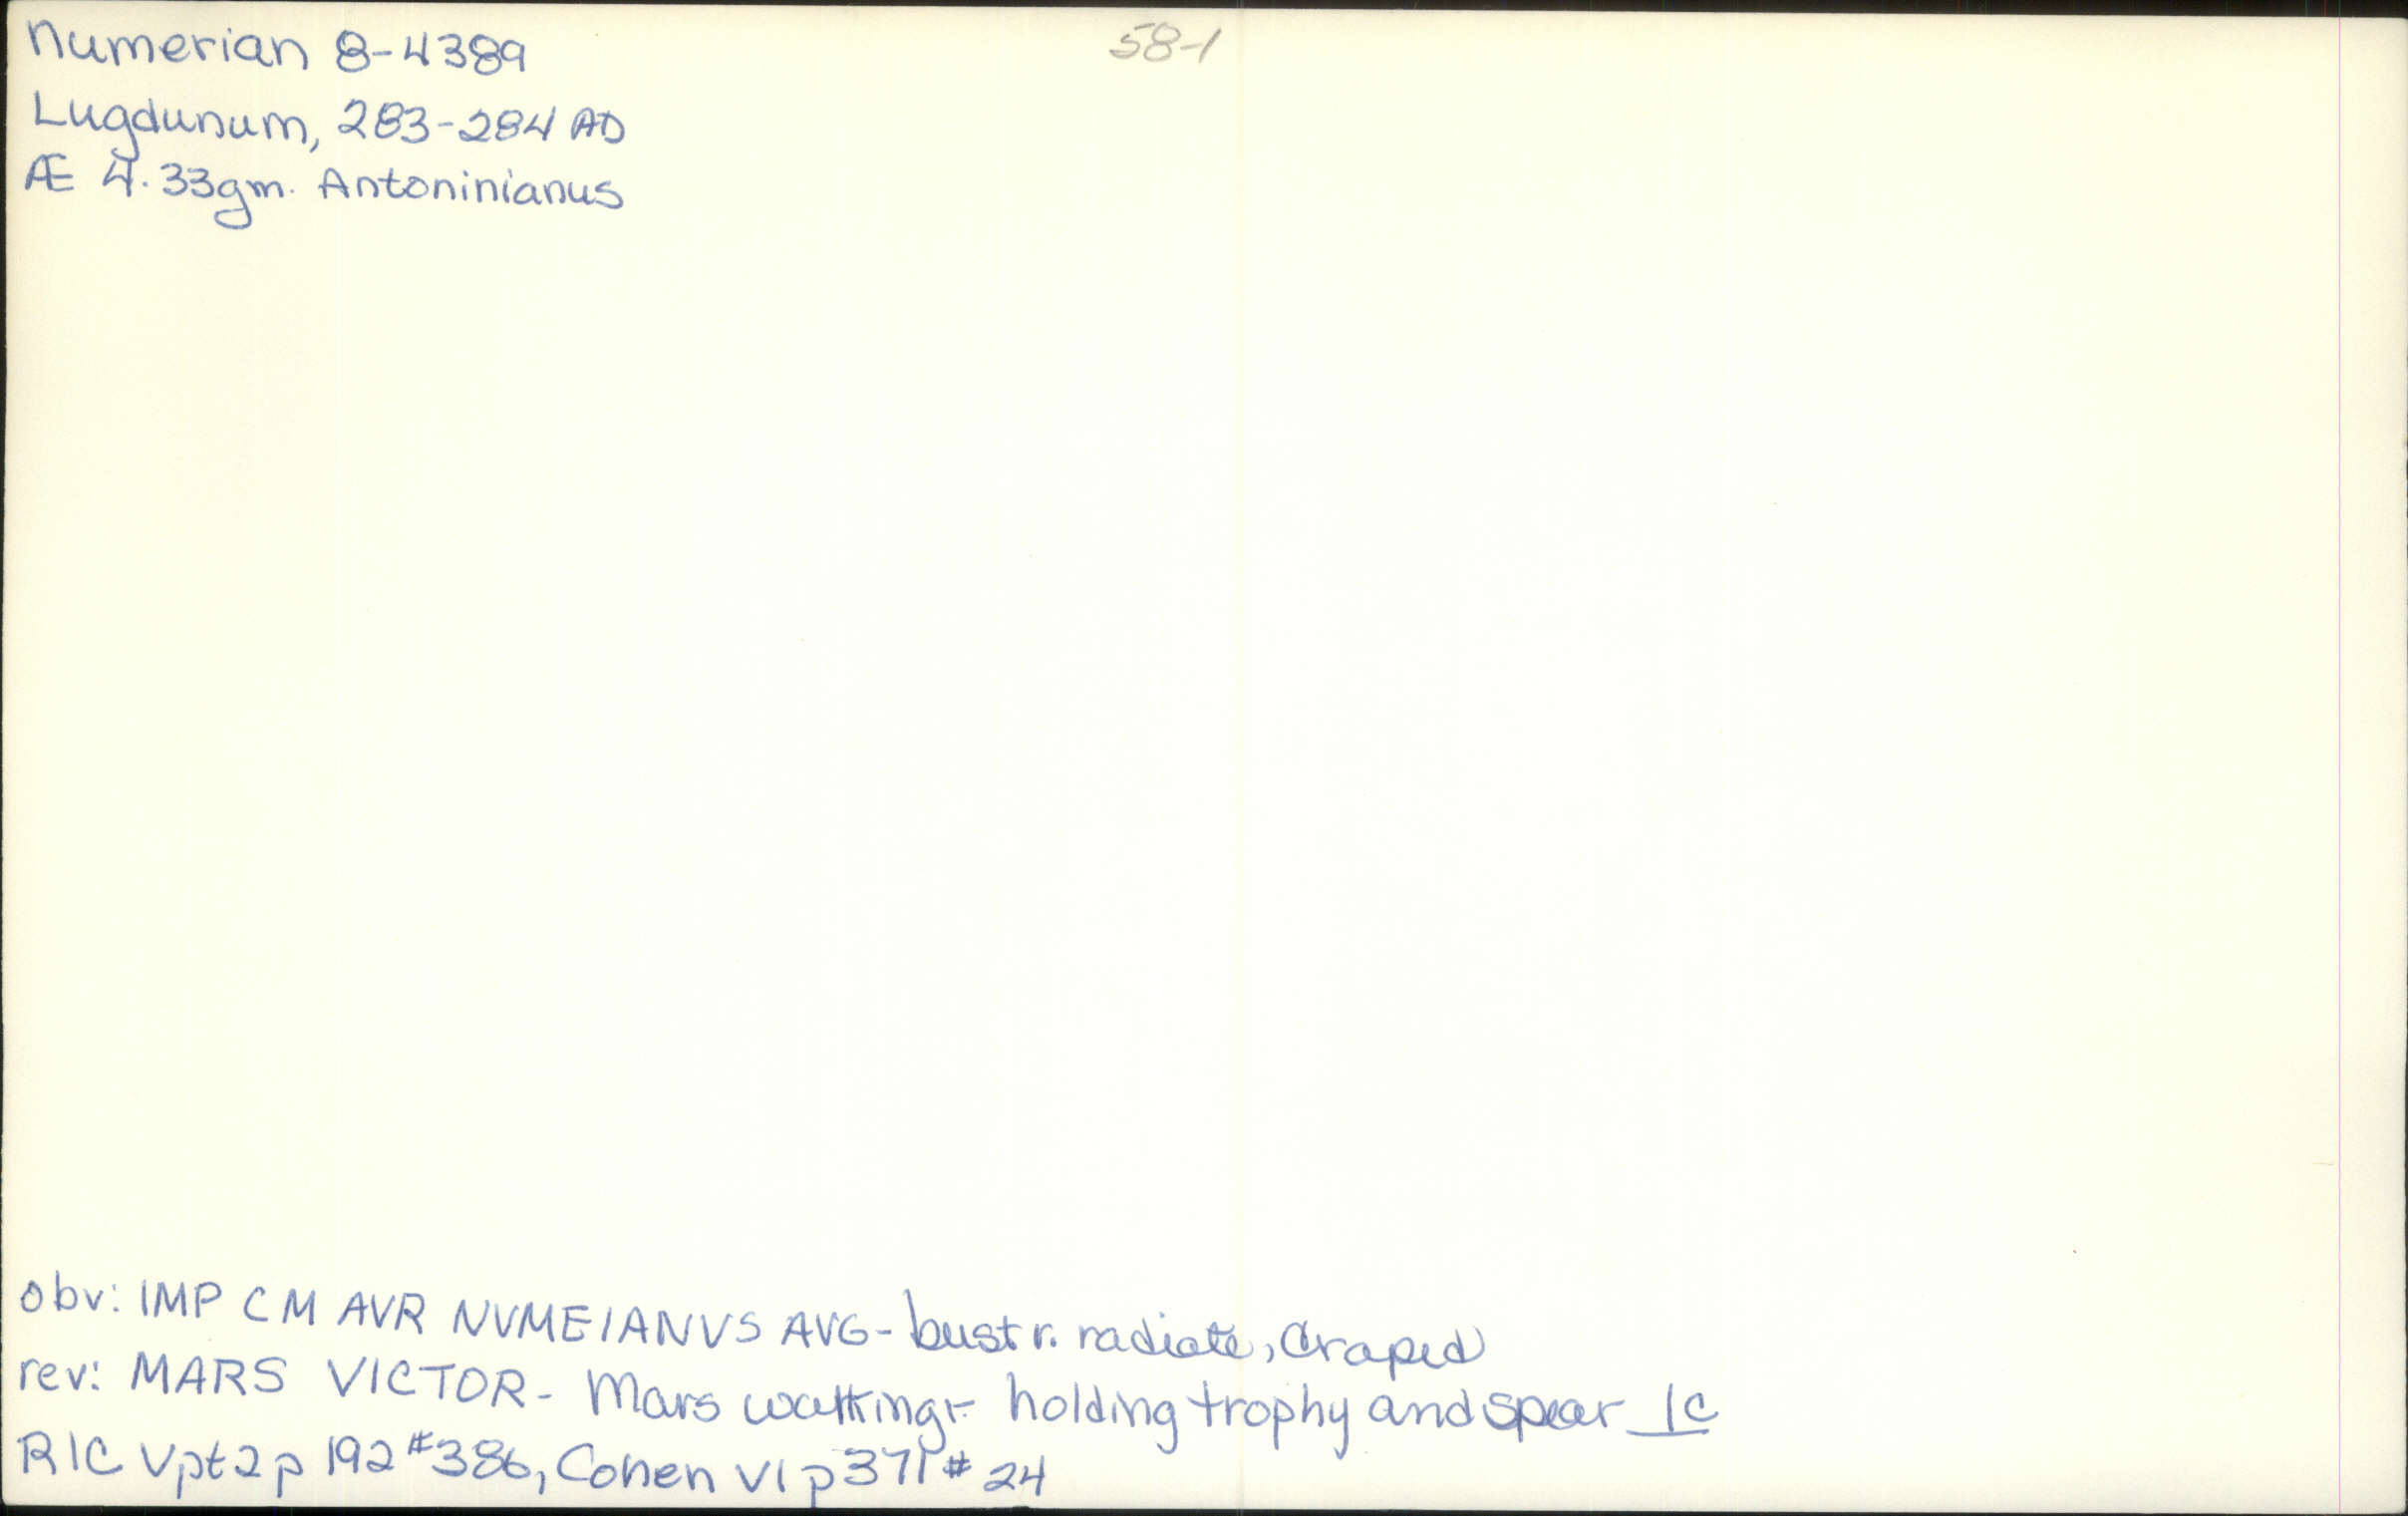 Numerian 8-4389
58-1
Lugdunum, 283-284 AD
Æ 4.33gm. Antoninianus
obv: IMP C M AVR NVMEIANVS AVG - bust r. radiate, draped
rev: MARS VICTOR - Mars walking r. holding trophy and spear IC
RIC V pt 2 p 192 #386, Cohen VI p 371 # 24